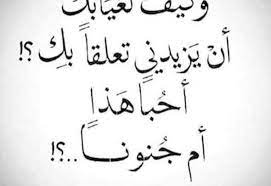 وكيف لغيابك
أن يَزيدني تعلقاً بكِ ؟!
أحُباً هَذا
أم جُنونــاً ..؟!